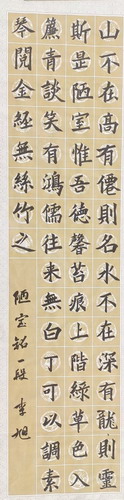 山不在高有僊則名水不在深有龍則靈
斯是陋室惟吾德馨苔痕上階綠草色入
簾青談笑有鴻儒往来無白丁可以調素
琴閱金經無絲竹之
陋室銘一段 李旭